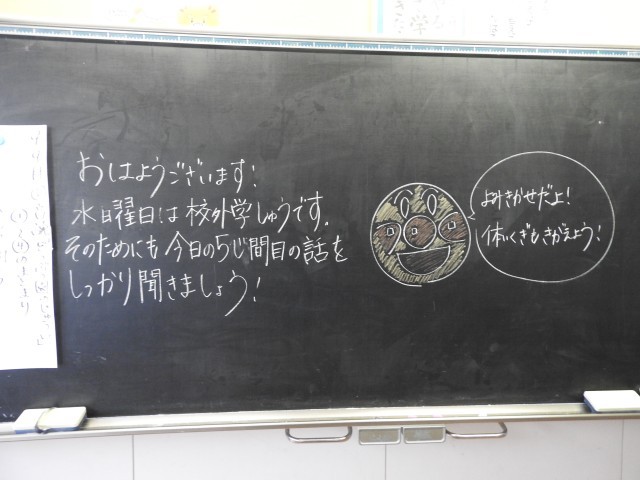 おはようございます!
水曜日は校外学しゅうです.
そのためにも今日の5じ間目の話を
しっかり聞きましょう!
よみきかせだよ!
体いくぎもきがえよう!